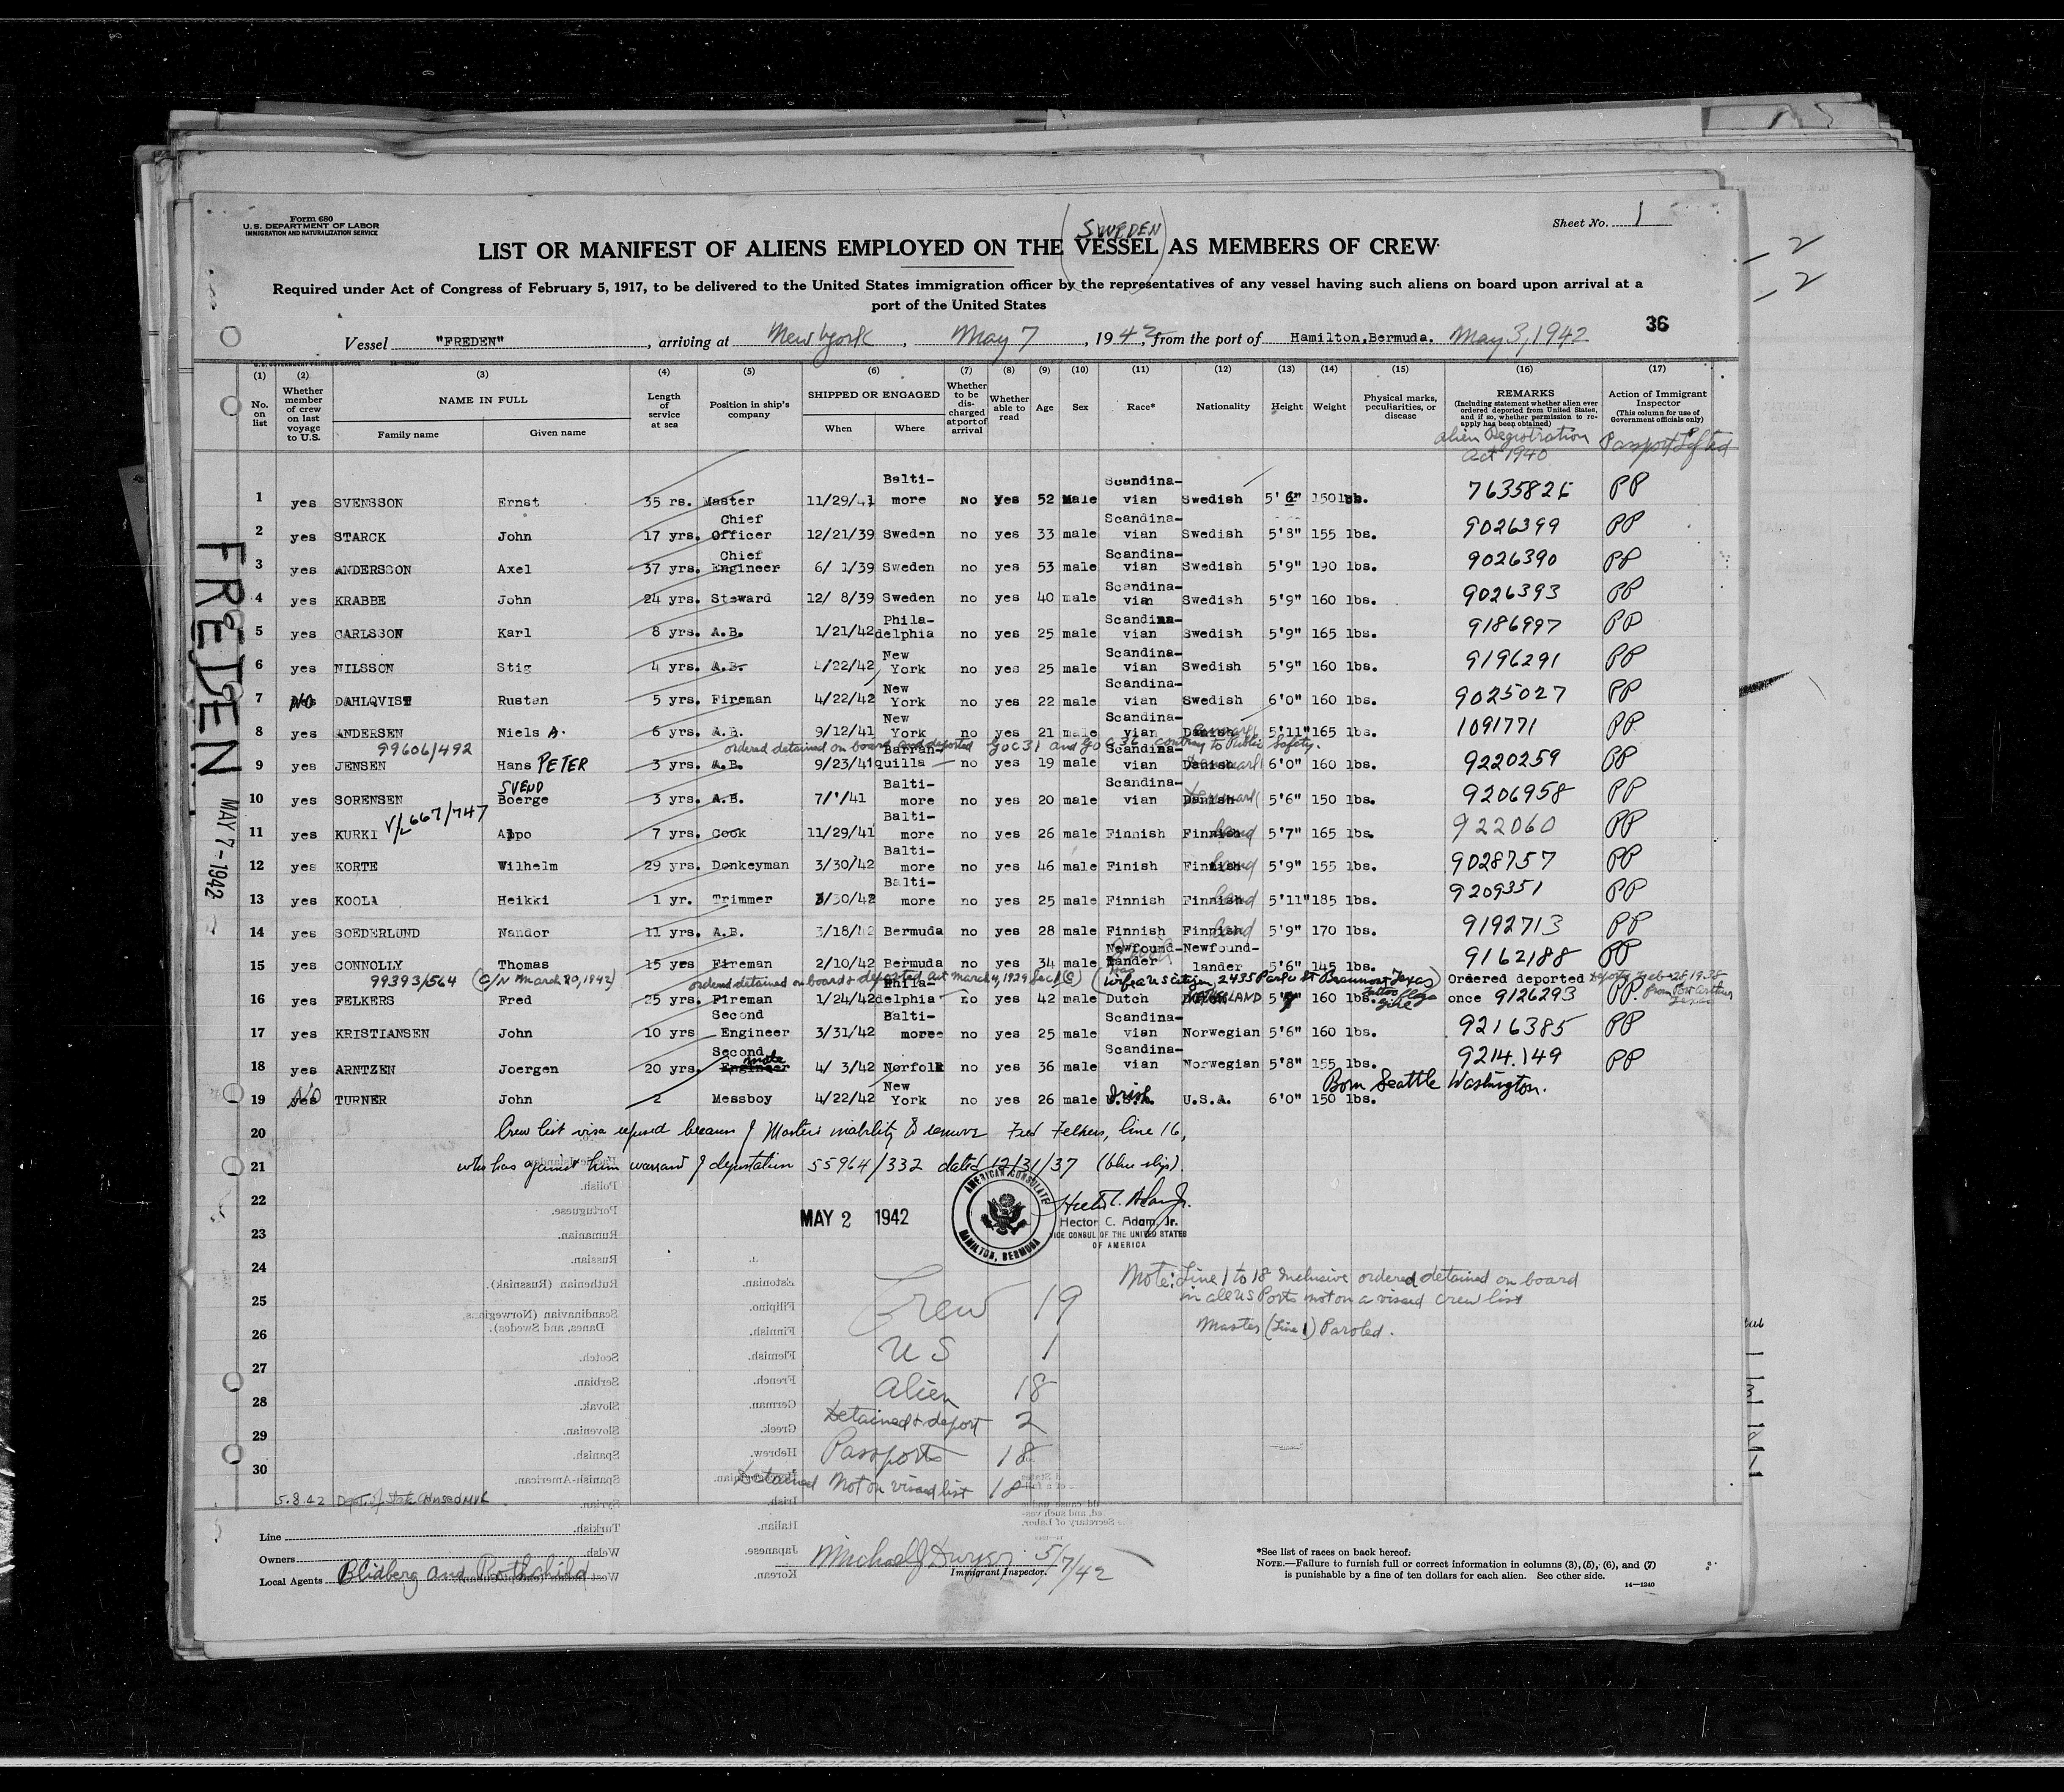 Form 680
U.S. DEPARTMENT OF LABOR
IMMIGRATION AND NATURALIZATION SERVICE
Sheet No. 1
(SWEDEN)
LIST OR MANIFEST OF ALIENS EMPLOYED ON THE VESSEL AS MEMBERS OF CREW
Required under Act of Congress of February 5, 1917, to be delivered to the United States immigration officer by the representatives of any vessel having such aliens on board upon arrival at a
port of the United States
36
Vessel "FREDEN", arriving at New York, May 7, 1942, from the port of Hamilton, Bermuda. May 3, 1942
(1) No. on list
(2) Whether member of crew on last voyage to U.S.
(3) NAME IN FULL Family name Given name
(4) Length of service at sea
(5) Position in ship's company
(6) SHIPPED OR ENGAGED When Where
(7) Whether to be discharged at port of arrival
(8) Whether able to read
(9) Age
(10) Sex
(11) Race*
(12) Nationality
(13) Height
(14) Weight
(15) Physical marks, peculiarities, or disease
(16) REMARKS (Including statement whether alien ever ordered deported from United States, and if so, whether permission to reapply has been obtained)
Alien Registration Act 1940
(17) Action of Immigrant Inspector (This column for use of Government officials only)
Passport Lifted
1 yes SVENSSON Ernst 35 rs. Master 11/29/41 Balti-more No Yes 52 Male Scandina-vian Swedish 5'6" 150 lbs. PP
2 yes STARCK John 17 yrs. Chief Officer 12/21/39 Sweden no yes 33 male Scandina-vian Swedish 5'8" 155 lbs. 9026399 PP
3 yes ANDERSSON Axel 37 yrs. Chief Engineer 6/ 1/39 Sweden no yes 53 male Scandina-vian Swedish 5'9" 190 lbs. 9026390 PP
4 yes KRABBE John 24 yrs. Steward 12/ 8/39 Sweden no yes 40 male Scandina-vian Swedish 5'9" 160 lbs. 9026393 PP
5 yes CARLSSON Karl 8 yrs. A.B. 1/21/42 Phila-delphia no yes 25 male Scandina-vian Swedish 5'9" 165 lbs. 9186997 PP
6 yes NILSSON Stig 4 yrs. A.B. 4/22/42 New York no yes 25 male Scandina-vian Swedish 5'9" 160 lbs. 9196291 PP
7 NO DAHLQVIST Rustan 5 yrs. Fireman 4/22/42 New York no yes 22 male Scandina-vian Swedish 6'0" 160 lbs. 9025027 PP
8 yes ANDERSEN Niels A. 6 yrs. A.B. 9/12/41 New York no yes 21 male Scandina-vian Danish 5'11" 165 lbs. 1091771 PP
99606/492 ordered detained on board and deported contrary to Public Safety.
9 yes JENSEN Hans PETER 3 yrs. A.B. 9/23/41 Barran-quilla no yes 19 male Scandina-vian Danish 6'0" 160 lbs. 9220259 PP
10 yes SORENSEN SVEND Boerge 3 yrs. A.B. Balti-more no yes 20 male Scandina-vian Danish 5'6" 150 lbs. 9206958 PP
11 yes KURKI V/L 667/747 Appo 7 yrs. Cook 11/29/41 Balti-more no yes 26 male Finnish Finnish 5'7" 165 lbs. 922060 PP
12 yes KORTE Wilhelm 29 yrs. Donkeyman 3/30/42 Balti-more no yes 46 male Finish Finnish 5'9" 155 lbs. 9028757 PP
13 yes KOOLA Heikki 1 yr. Trimmer 3/30/42 Balti-more no yes 25 male Finnish Finnish 5'11" 185 lbs. 9209351 PP
14 yes SOEDERLUND Nandor 11 yrs. A.B. 3/18/42 Bermuda no yes 28 male Finnish Finnish 5'9" 170 lbs. 9192713 PP
15 yes CONNOLLY Thomas 15 yrs Fireman 2/10/42 Bermuda no yes 34 male Newfound-lander Newfound-lander 5'6" 145 lbs. 9162188 PP
99393/564 (C/N March 20, 1942) ordered detained on board & deported act March 4, 1929 Sec 1 (c) (Wife a US citizen, 2435 Park St Beaumont Texas)
16 yes FELKERS Fred 25 yrs. Fireman 1/24/42 Phila-delphia no yes 42 male Dutch NETHERLAND 160 lbs. Ordered deported once 9126293 PP from Port Arthur Texas
17 yes KRISTIANSEN John 10 yrs Second Engineer 3/31/42 Balti-moree no yes 25 male Scandina-vian Norwegian 5'6" 160 lbs. 9216385 PP
18 yes ARNTZEN Joergen 20 yrs. Second Engineer mate 4/ 3/42 Norfolk no yes 36 male Scandina-vian Norwegian 5'8" 155 lbs. 9214.149 PP
19 NO TURNER John 2 Messboy 4/22/42 New York no yes 26 male Irish U.S.A. 6'0" 150 lbs. Born Seattle Washington.
20 Crew list visa refused because of Master's inability to remove Fred Felkers, line 16,
21 who has against him warrant of deportation 55964/332 dated 12/31/37 (blue slip).
22
MAY 2 1942
AMERICAN CONSULATE HAMILTON, BERMUDA
Hector C. Adam, Jr.
Hector C. Adam, Jr.
VICE CONSUL OF THE UNITED STATES
OF AMERICA
23
24
Note: Line 1 to 18 Inclusive ordered detained on board
in all US Ports not on a visaed crew list
Master (Line 1) Paroled.
25 Crew 19
26 US 1
27 Alien 18
28 Detained & deport 2
29 Passports 18
30 Detained Not on visaed list 18
5.8.42 Dept. of State
FREDEN
MAY 7 - 1942
Line
Owners
Local Agents Blidberg and Rothchild
Michael J Dwyer 5/7/42
Immigrant Inspector.
*See list of races on back hereof.
NOTE.—Failure to furnish full or correct information in columns (3), (5), (6), and (7)
is punishable by a fine of ten dollars for each alien. See other side.
14—1240